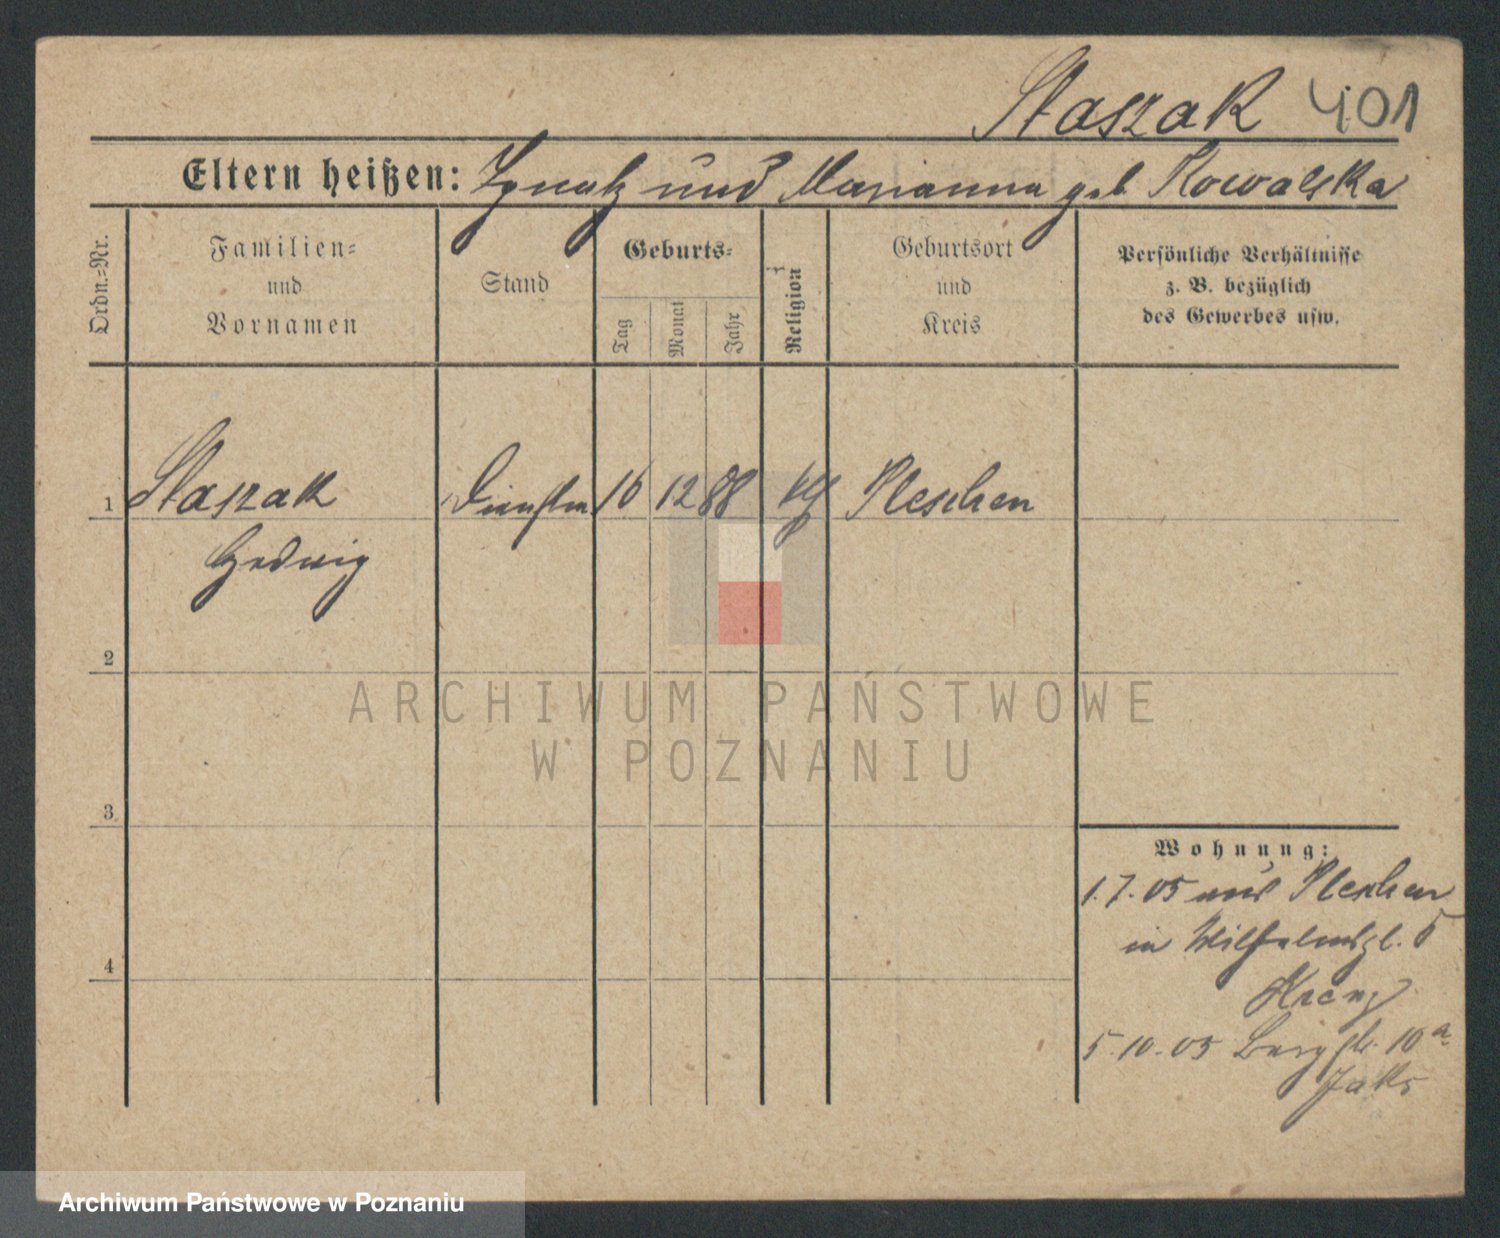 Staszak 401
Eltern heißen: Ignatz und Marianna geb Kowalska
Ordn.=Nr.
Familien=
und
Vornamen
Stand
Geburts=
Tag
Monat
Jahr
Religion
Geburtsort
und
Kreis
Persönliche Verhältnisse
z. B. bezüglich
des Gewerbes usw.
1 Staszak Dienstm 16 12 88 kth Pleschen
Hedwig
2
ARCHIWUM PAŃSTWOWE
W POZNANIU
3
Wohnung:
1.7.05 aus Pleschen
in Wilhelmspl. 5
4
5.10.05 Bergstr. 10a
Archiwum Państwowe w Poznaniu